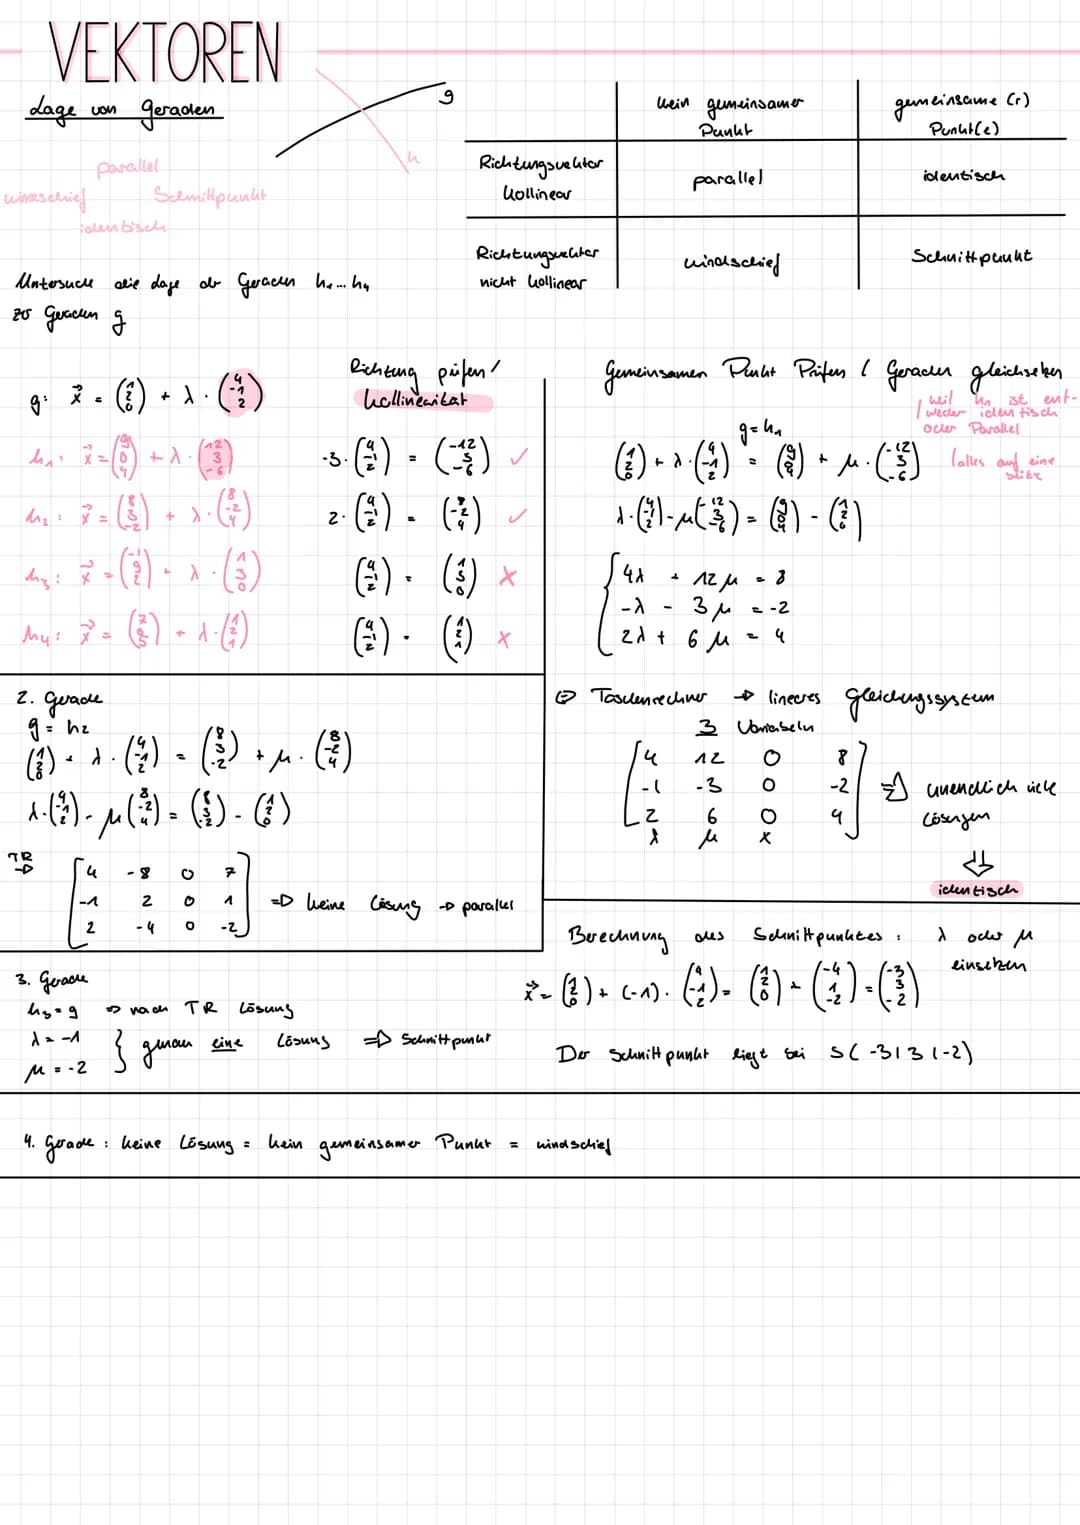 VEKTOREN
Lage von Geraden
g
h
parallel
windschief Schnittpunkt
identisch
kein gemeinsamer Punkt
gemeinsame (r) Punkt(e)
Richtungsvektor kollinear
parallel
identisch
Richtungsvektor nicht kollinear
windschief
Schnittpunkt
Untersuche die Lage der Geraden h₁ ... h₄
zu Geraden g
g: x⃗ = (1 2 0) + λ · (4 -1 2)
h₁: x⃗ = (9 0 4) + λ · (-12 3 -6)
h₂: x⃗ = (8 3 -2) + λ · (8 -2 4)
h₃: x⃗ = (-1 9 2) + λ · (1 3 0)
h₄: x⃗ = + λ · (1 2 1)
Richtung prüfen/
kollinearität
-3 · (4 -1 2) = (-12 3 -6) ✓
2 · (4 -1 2) = (8 -2 4) ✓
(4 -1 2) · (1 3 0) ×
(4 -1 2) · (1 2 1) ×
Gemeinsamen Punkt Prüfen ( Geraden gleichsetzen
weil h₁ ist ent-
weder identisch
oder Parallel
g = h₁
(1 2 0) + λ · (4 -1 2) = (9 0 4) + μ · (-12 3 -6)
(alles auf eine
Seite
λ · (4 -1 2) - μ (-12 3 -6) = (9 0 4) - (1 2 0)
4λ + 12μ = 8
-λ - 3μ = -2
2λ + 6μ = 4
⇔ Taschenrechner → lineares gleichungssystem
3 Variabeln
4 12 0 8
-1 -3 0 -2
2 6 0 4
λ μ x
⇒ unendlich viele
Lösungen
⇓
identisch
2. Gerade
g = h₂
(1 2 0) + λ · (4 -1 2) = (8 3 -2) + μ · (8 -2 4)
λ · (4 -1 2) - μ (8 -2 4) = (8 3 -2) - (1 2 0)
TR
→
4 -8 0 7
-1 2 0 1
2 -4 0 -2
⇒ keine Lösung → parallel
3. Gerade
h₃ = g ⇒ nach TR Lösung
λ = -1
μ = -2
} genau eine Lösung ⇒ Schnittpunkt
Berechnung des Schnittpunktes : λ oder μ
einsetzen
x⃗ = (1 2 0) + (-1) · (4 -1 2) = (1 2 0) + (-4 1 -2) = (-3 3 -2)
Der Schnittpunkt liegt bei S( -3 | 3 | -2)
4. Gerade : keine Lösung = kein gemeinsamer Punkt = windschief